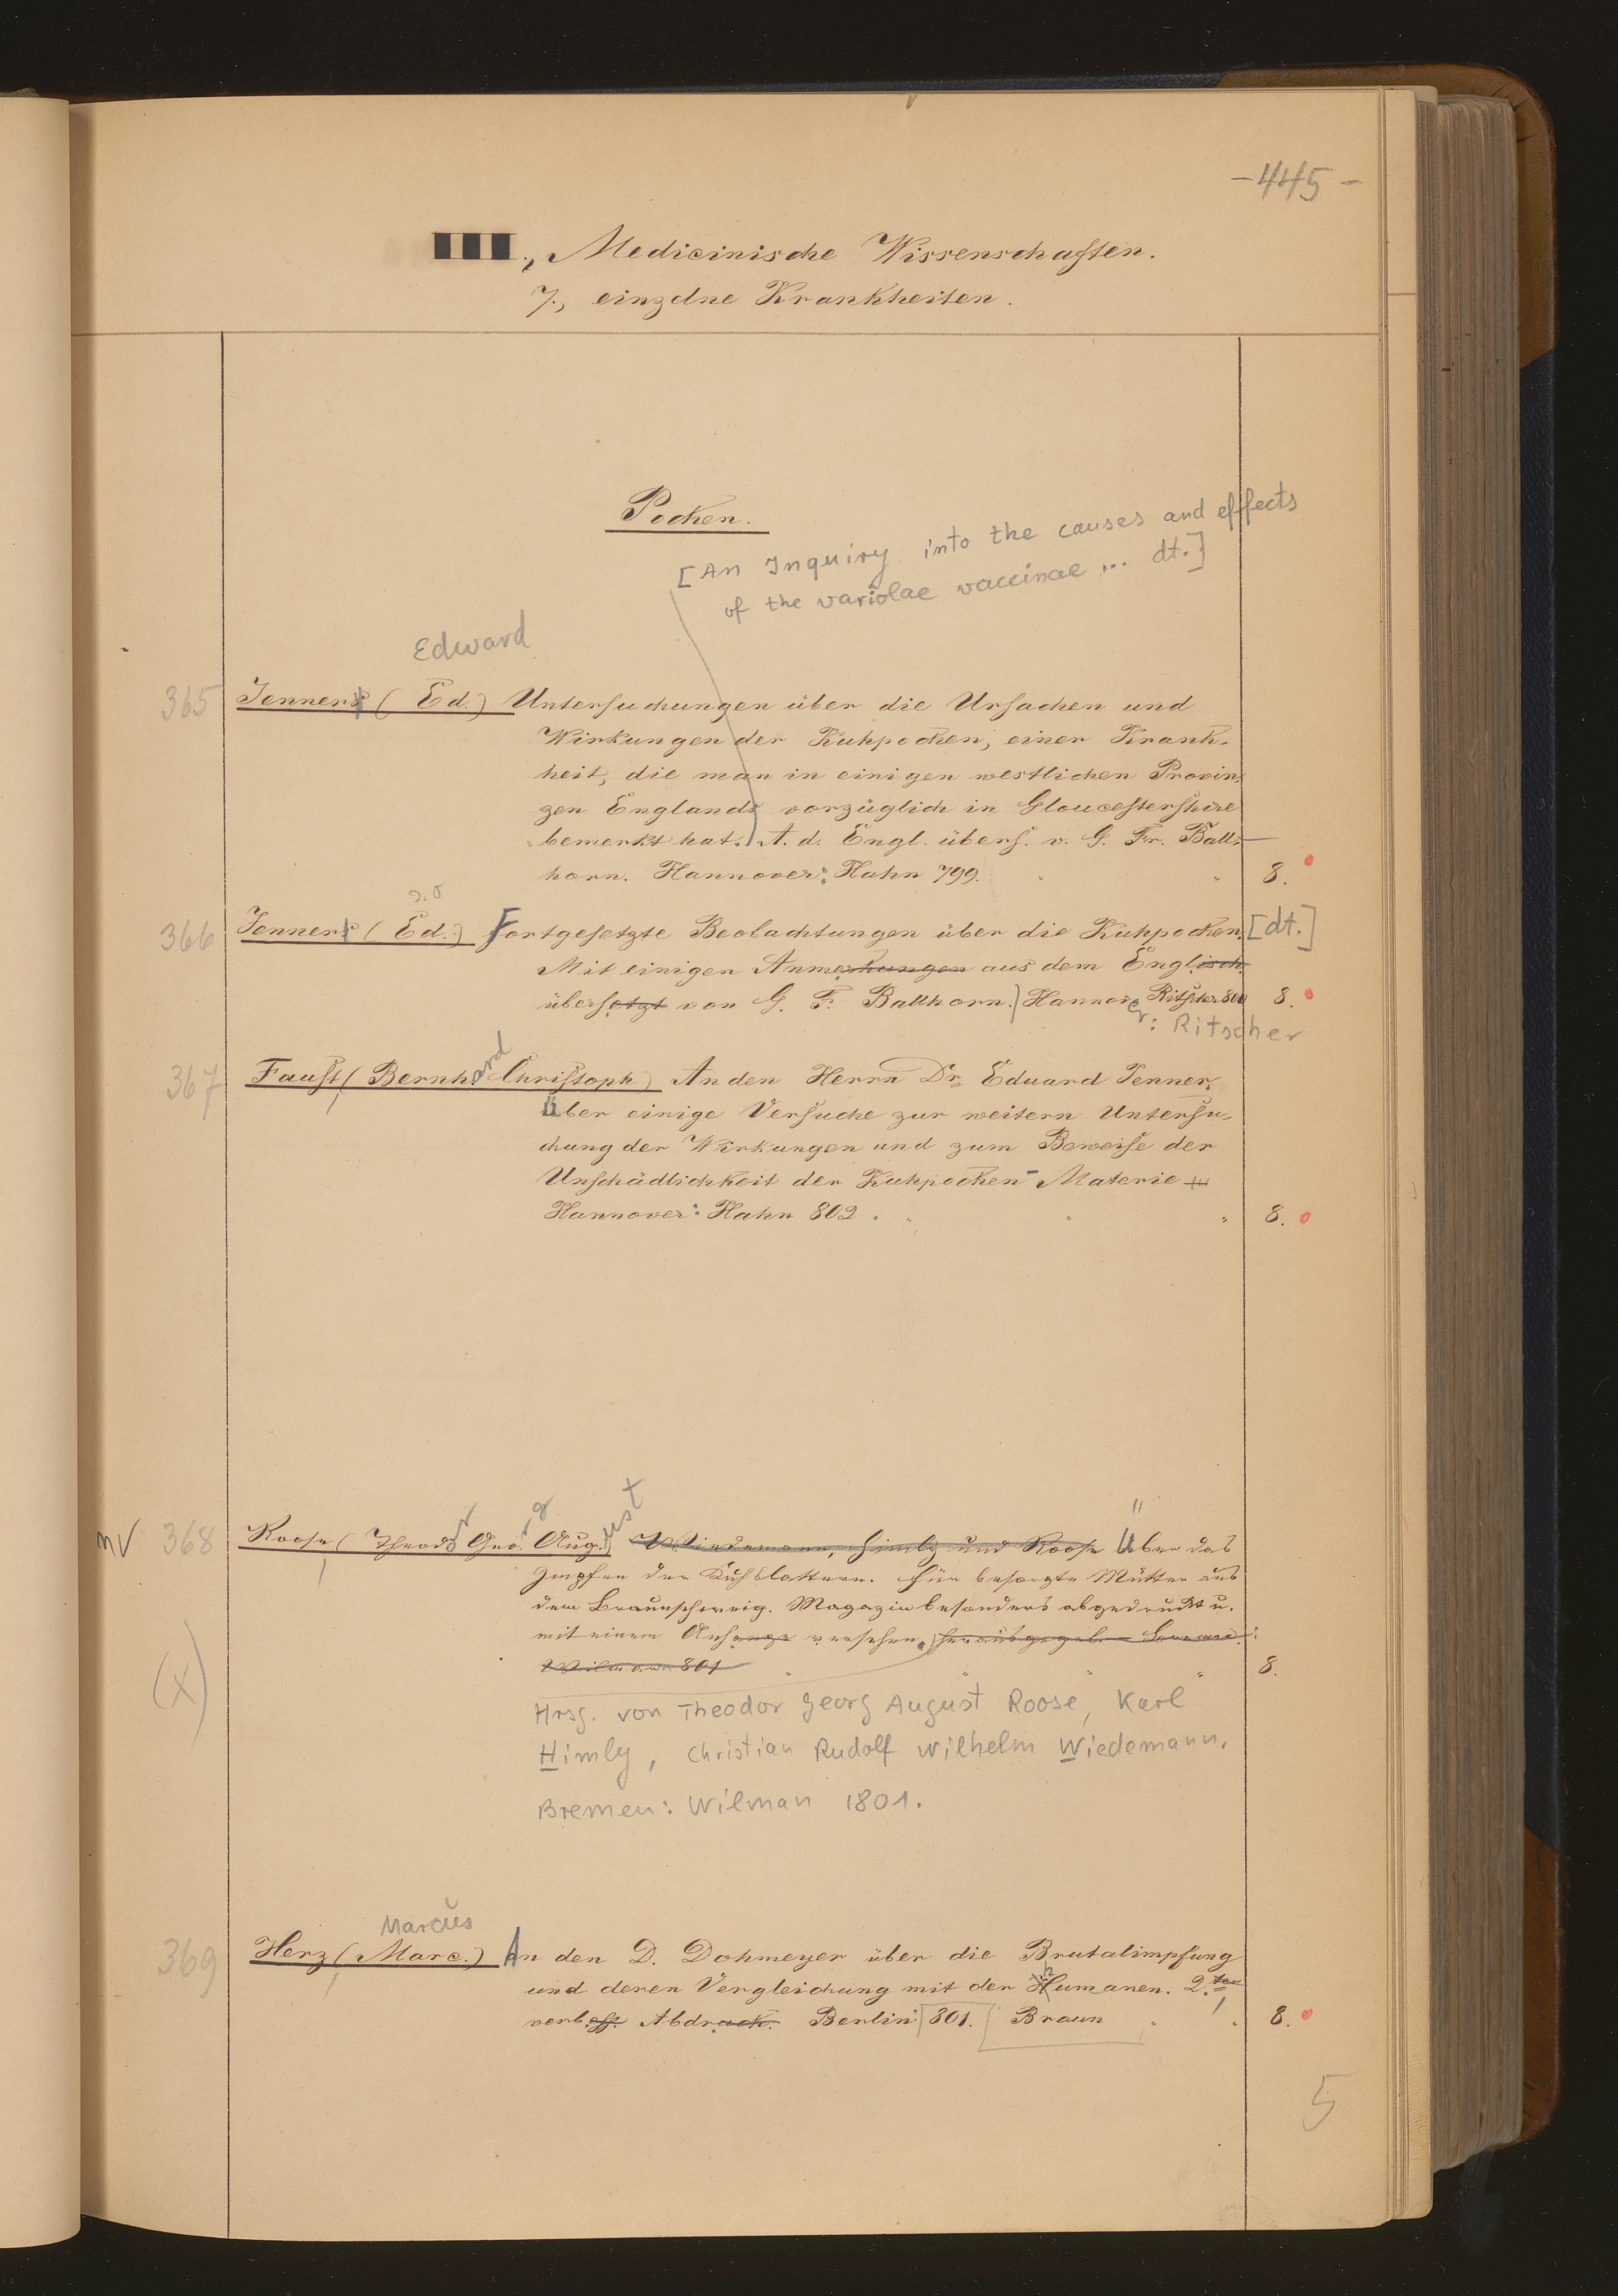 -445-
III., Medicinische Wissenschaften.
7., einzelne Krankheiten.
Pocken.
[An Inquiry into the causes and effects
of the variolae vaccinae ... dt.]
Edward
365 Jenners (Ed.) Untersuchungen über die Ursachen und
Wirkungen der Kuhpocken, einer Krank-
heit, die man in einigen westlichen Provin-
zen Englands vorzüglich in Gloucestershire
bemerkt hat. A. d. Engl. übers. v. G. Fr. Ball-
horn. Hannover: Hahn 799. " " 8.
s.o
366 Jenners (Ed.) Fortgesetzte Beobachtungen über die Kuhpocken. [dt.]
Mit einigen Anmerkungen aus dem Englisch
übersetzt von G. F. Ballhorn.) Hannover Ritscher 800 8.
er: Ritscher
367 Faust (Bernhard Christoph) An den Herrn Dr. Eduard Jenner.
Über einige Versuche zur weitern Untersu-
chung der Wirkungen und zum Beweise der
Unschädlichkeit der Kuhpocken-Materie
Hannover: Hahn 802. " " " 8.
nV 368 Roose (Theodor Geo.rg August) Wiedemann, Himly und Roose Über das
Impfen der Kuhblattern. Für besorgte Mütter aus
dem Braunschweig. Magazin besonders abgedruckt u.
mit einem Anhange versehen. herausgegeb. Bremen:
Wilmann 801 " " " " 8.
(X)
Hrsg. von Theodor Georg August Roose, Karl
Himly, Christian Rudolf Wilhelm Wiedemann.
Bremen: Wilman 1801.
Marcus
369 Herz (Marc.) An den D. Dohmeyer über die Brutalimpfung
und deren Vergleichung mit der Humanen. 2.ter
verbess. Abdruck. Berlin: 801. Braun " " 8.
5